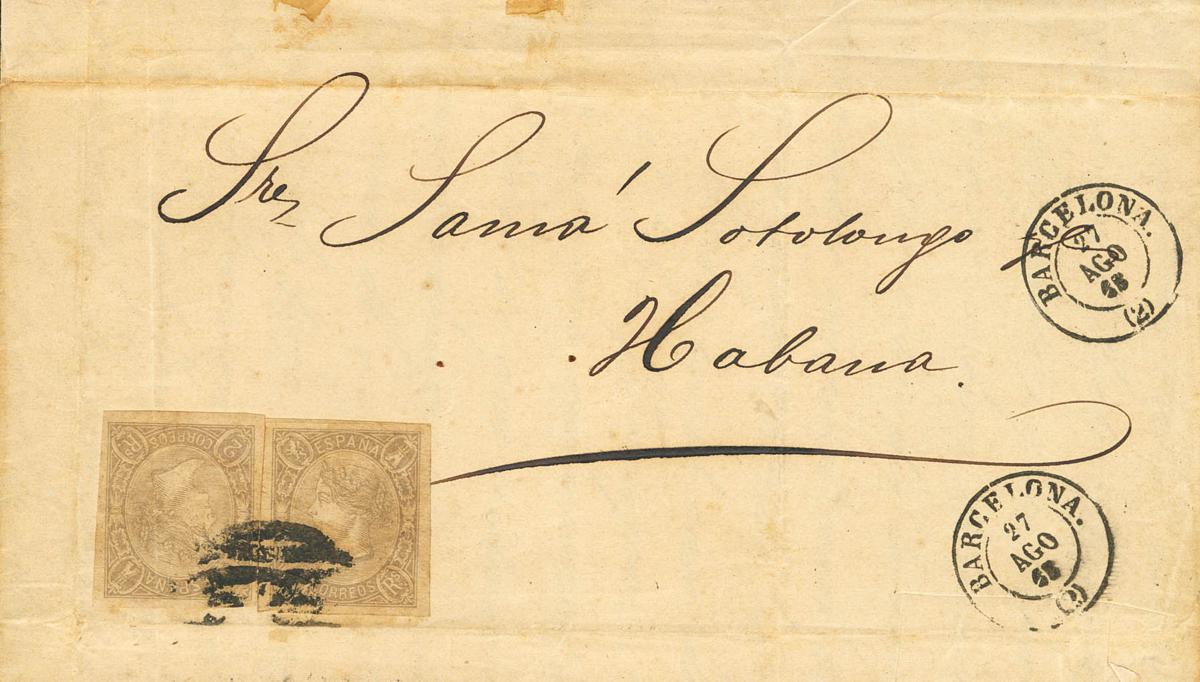 Sres Samá Sotolongo
Habana.
BARCELONA.
27
AGO
65
(2)
BARCELONA.
27
AGO
65
(2)
CORREOS
2 Rs
ESPAÑA
ESPAÑA
CORREOS
Rs